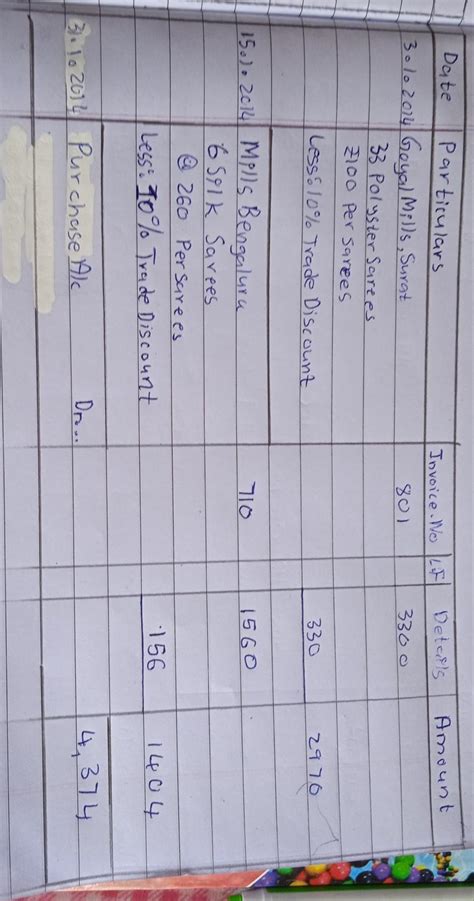 Date Particulars Invoice.No LF Details Amount
3.1.2014 Goyal Mills, Surat 801 3300
33 Polyster Sarees
@100 Per sarees
Less: 10% Trade Discount 330 2970
15.1.2014 Mills Bengaluru 710 1560
6 Silk Sarees
@ 260 Per sarees
Less: 10% Trade Discount 156 1404
31.1.2014 Purchase A/c Dr... 4,374